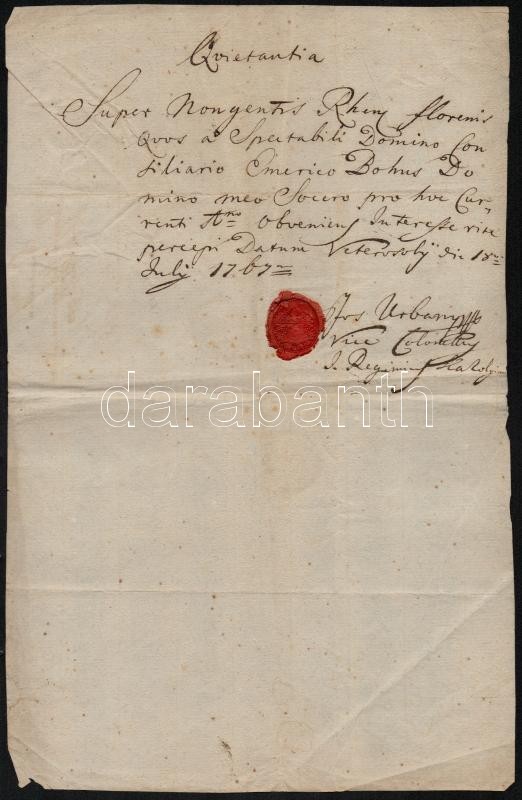 Qvietantia
Super Nongentis Rhen florenis
Qvos a Spectabili Domino Con
siliario Emerico Bohus Do
mino meo Socero pro hoc Cur„
renti Ano obveniens Interesse rite
percepi Datum Veterosoly die 18
July 1767
Jos Urbany
Vice Colonellus
I. Regiminis
darabanth